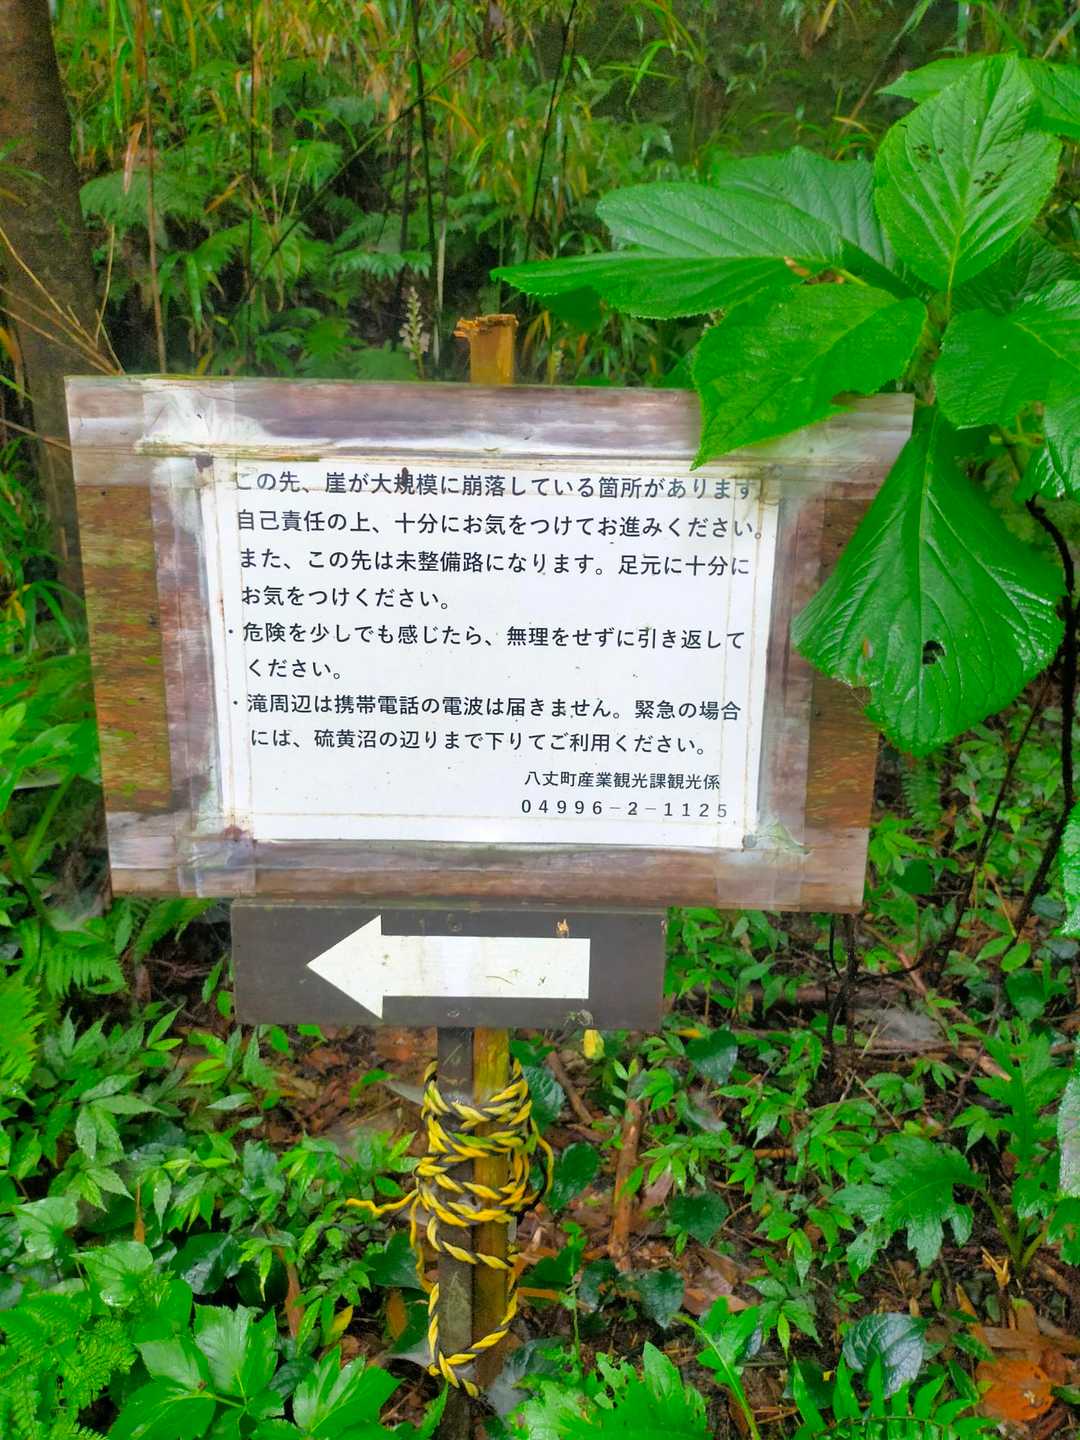 この先、崖が大規模に崩落している箇所があります
自己責任の上、十分にお気をつけてお進みください。
また、この先は未整備路になります。足元に十分に
お気をつけください。
・危険を少しでも感じたら、無理をせずに引き返して
ください。
・滝周辺は携帯電話の電波は届きません。緊急の場合
には、硫黄沼の辺りまで下りてご利用ください。
八丈町産業観光課観光係
04996-2-1125